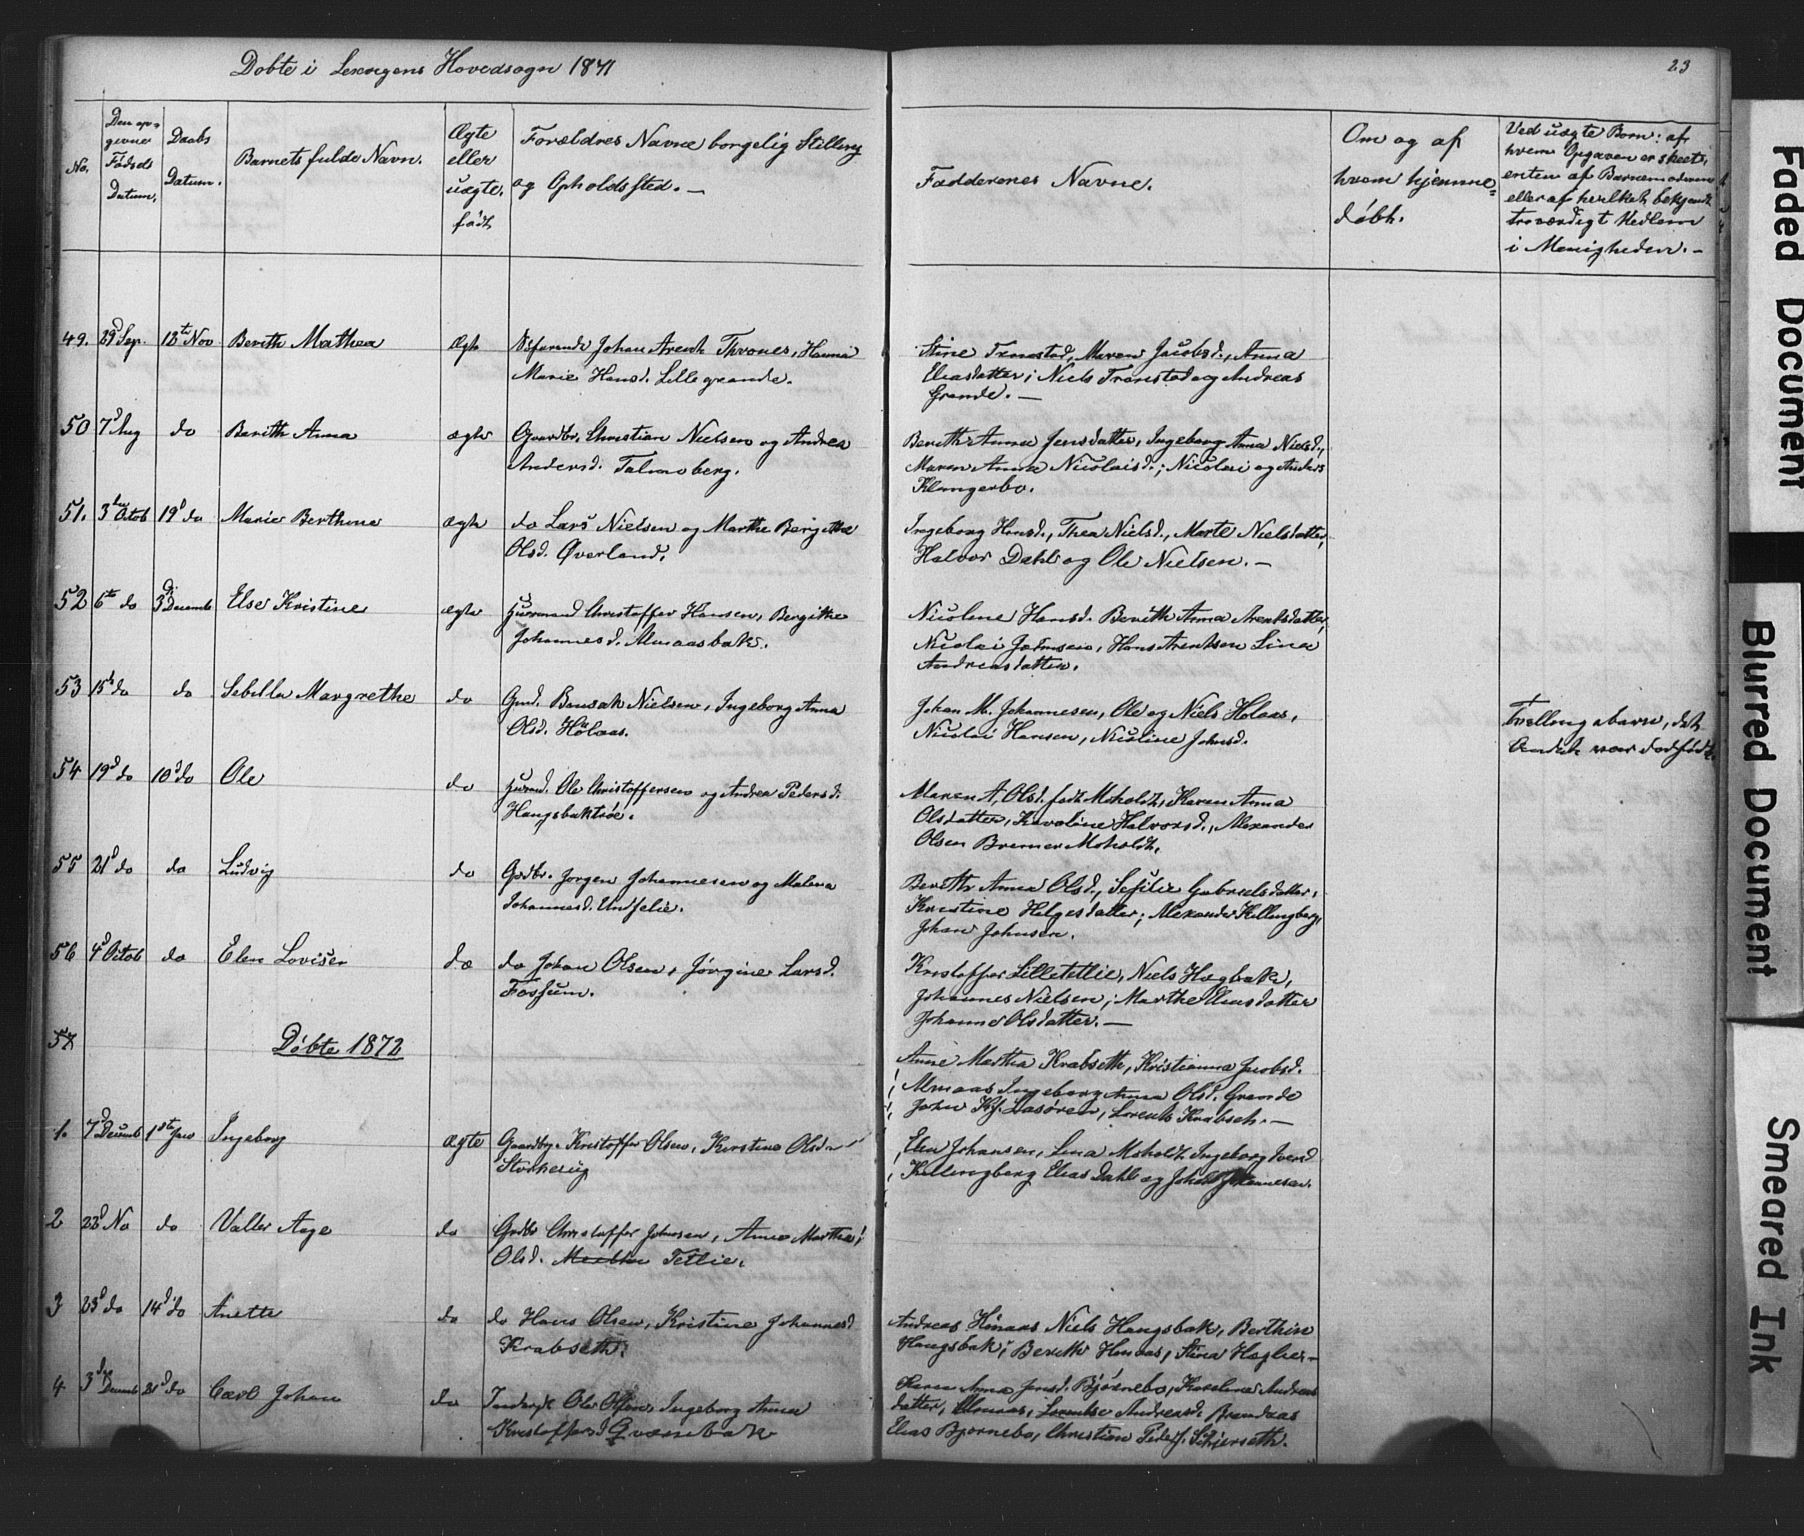 Døbte i Lexvigens Hovedsogn 1871
23
No.
Den op-
givne
Fødsels
Datum.
Daabs
Datum.
Barnets fulde Navn.
Ægte
eller
uægte
født
Forældres Navne borgelig Stilling
og Opholdssted. —
Fadderenes Navne.
Om og af
hvem hjemme-
døbt.
Ved uægte Born: af
hvem Opgaven er skeet,
enten af Barnemoderen
eller af hvilket bekjendt
troværdigt Medlem
i Menigheden. —
49. 29d Sep. 12te Nov Berith Mathea Ægte Johan Arent Thrones, Hanna
Marie Hansd. Lillegrande.
Stine Tronstad, Maren Jacobsd., Anna
Eliasdatter; Niels Tronstad og Andreas
Grande. —
50 7d Aug do Berith Anna ægte Gaardbr. Christian Nielsen og Andrea
Andersd. Talmoberg.
Berith Anna Jensdatter, Ingeborg Anna Nielsd.,
Maren Anna Nicolaisd.; Nicolai og Anders
Klungerbo.
51. 3die Octob 19d do Marie Berthine ægte do Lars Nielsen og Marthe Bergitha
Olsd. Øverland.
Ingeborg Hansd., Thea Nielsd., Marte Nielsdatter,
Halvor Dahl og Ole Nielsen. —
52 6te do 3di Decemb Else Kristine ægte Huusmand Christoffer Hansen, Bergithe
Johannesd. Amaasbak.
Nicoline Hansd. Berith Anna Arentsdatter,
Nicolai Johnsen, Hans Arentsen Lina
Andreasdatter.
53 15d do do Sebilla Margrethe do Gmd. Bensak Nielsen, Ingeborg Anna
Olsd. Hølaas.
Johan M. Johannesen, Ole og Niels Holaas,
Nicolai Hansen, Nicoline Johnsd.
Tvillingabarn, det
Andet var dødfødt.
54 19d do 10d do Ole do Huusmd. Ole Christoffersen og Andrea Pedersd.
Haugsbaktrøe.
Maren A. Olsd. født Moholdt, Karen Anna
Olsdatter, Karoline Halvorsd., Alexander
Olsen Bremer Moholdt.
55 21d do do Ludvig do Grdbr. Jorgen Johannesen og Malena
Johannesd. Undfelie.
Berith Anna Olsd., Sefilie Gabrielsdatter,
Kristine Helgesdatter; Alexander Killingberg,
Johan Johnsen.
56 4d Octob do Elen Lovise do do Johan Olsen, Jørgine Larsd.
Fossum.
Kristoffer Lilletellie, Niels Hagbak,
Johannes Nielsen; Marthe Eliasdatter
Johanne Olsdatter. —
57
Døbte 1872
Anne Martha Krabseth, Kristianna Jacobsd.
Almaas Ingeborg Anna Olsd. Grande
John Kf. Lasøren, Lorents Krabseth. —
1. 7d Decemb 1ste Jan Ingeborg ægte Gaardbr. Kristoffer Olsen, Kirstine Olsd
Storkerug
Elen Johansen, Lina Moholdt Ingeborg Iversd
Killingberg Elias Dahl og Johan Johannesen.
2 22d No do Valler Aage do Grdbr Christoffer Johnsen, Anne Martha
Olsd. Tellie.
3 23d do 14d do Anette do do Hans Olsen, Kristine Johannesd
Krabseth.
Andreas Hønaas Niels Haugsbak, Berthin
Haugsbak; Berith Honaas, Stina Haglie. —
4 3die Decemb 21d do Carl Johan do Inderst Ole Olsen, Ingeborg Anna
Kristoffersd Qvannebak
Karen Anna Jensd. Bjørnebo, Karoline Andreas
datter, Almaas, Lorentse Andreasd. Brandaas
Elias Bjørnebo, Christian Peders. Schjerseth.
Faded Document
Blurred Document
Smeared Ink